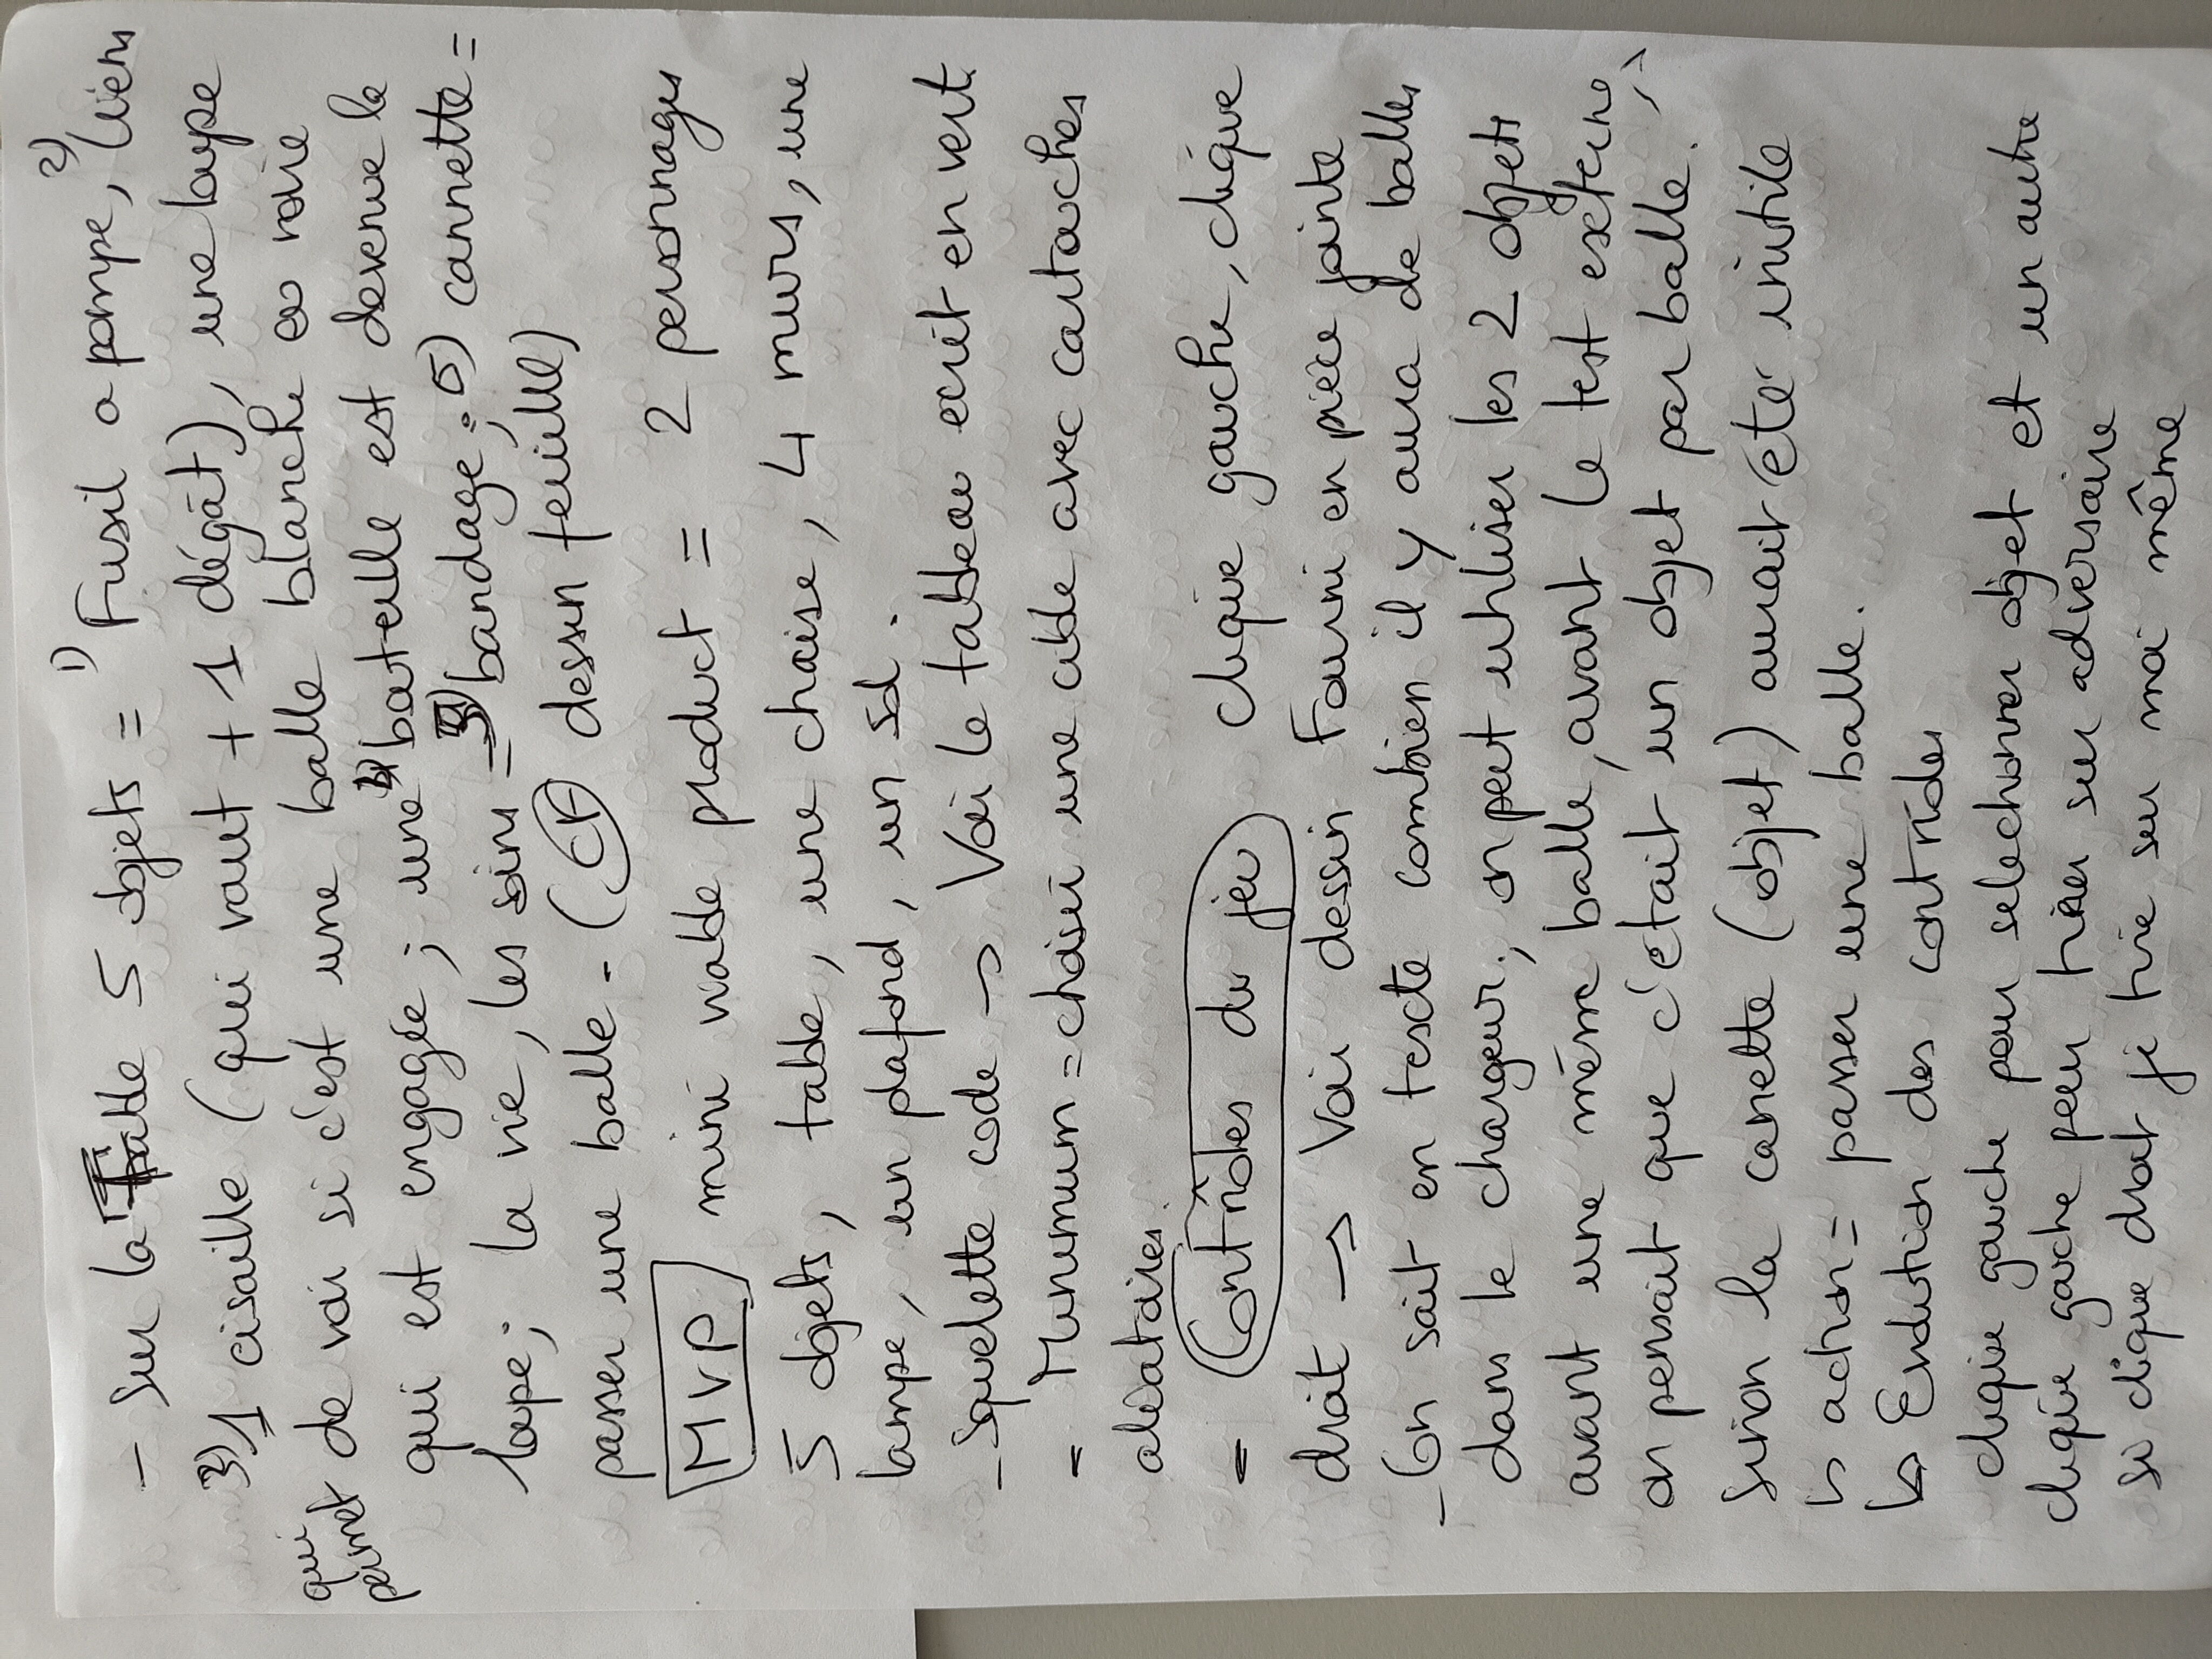 - Sur la table 5 objets = 1) Fusil a pompe, 2) liens
3) 1 cisaille (qui vaut + 1 dégât), une loupe
qui permet de voir si c'est une balle blanche ou noire
qui est engagée ; une bouteille est devenue la
loupe ; la vie, les soins = bandage ; 5) cannette =
passer une balle - (CF dessin feuille)
MVP mini viable product = 2 personnages
5 objets, table, une chaise, 4 murs, une
lampe, un plafond, un sol.
- Squelette code → Voir le tableau ecrit en vert
- Minimum = choisir une cible avec cartouches
aléatoires.
- Contrôles du jeu clique gauche, clique
droit → Voir dessin Fourni en pièce jointe
- On sait en texte combien il y aura de balles
dans le chargeur ; on peut utiliser les 2 objets
avant une même balle, avant le test externe,
on pensait que c'était un objet par balle.
Sinon la canette (objet) aurait été inutile
↳ action = passer une balle.
↳ Evolution des contrôles
clique gauche pour selectionner objet et un autre
clique gauche pour tirer sur adversaire
si clique droit je tire sur moi même